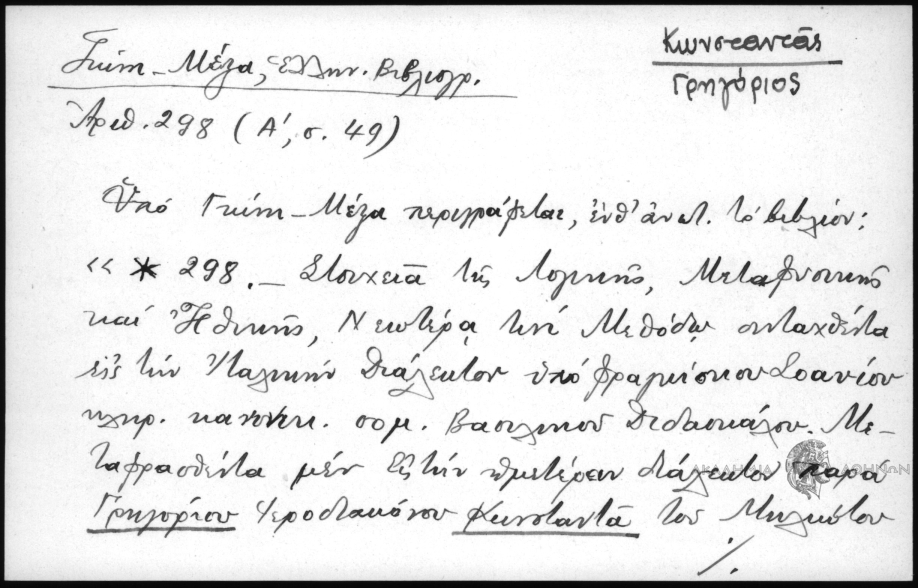 Κωνσταντᾶς
Γρηγόριος
Γκίνη – Μέξα, Ἑλλην. Βιβλιογρ.
Ἀριθ. 298 (Α΄, σ. 49)
Ὑπό Γκίνη – Μέξα περιγράφεται, ἐνθ' ἀνωτ. τό βιβλίον:
«* 298. – Στοιχεῖα τῆς Λογικῆς, Μεταφυσικῆς
καί Ἠθικῆς, Νεωτέρᾳ τινί Μεθόδῳ συνταχθέντα
εἰς τήν Ἰταλικήν Διάλεκτον ὑπό Φραγκίσκου Σοαυΐου
κληρ. κανονικ. σομ. Βασιλικοῦ Διδασκάλου. Με-
ταφρασθέντα μέν εἰς τήν ἡμετέραν διάλεκτον παρά
Γρηγορίου Ἱεροδιακόνου Κωνσταντᾶ τοῦ Μηλιώτου
./.
ΑΚΑΔΗΜΙΑ ΑΘΗΝΩΝ